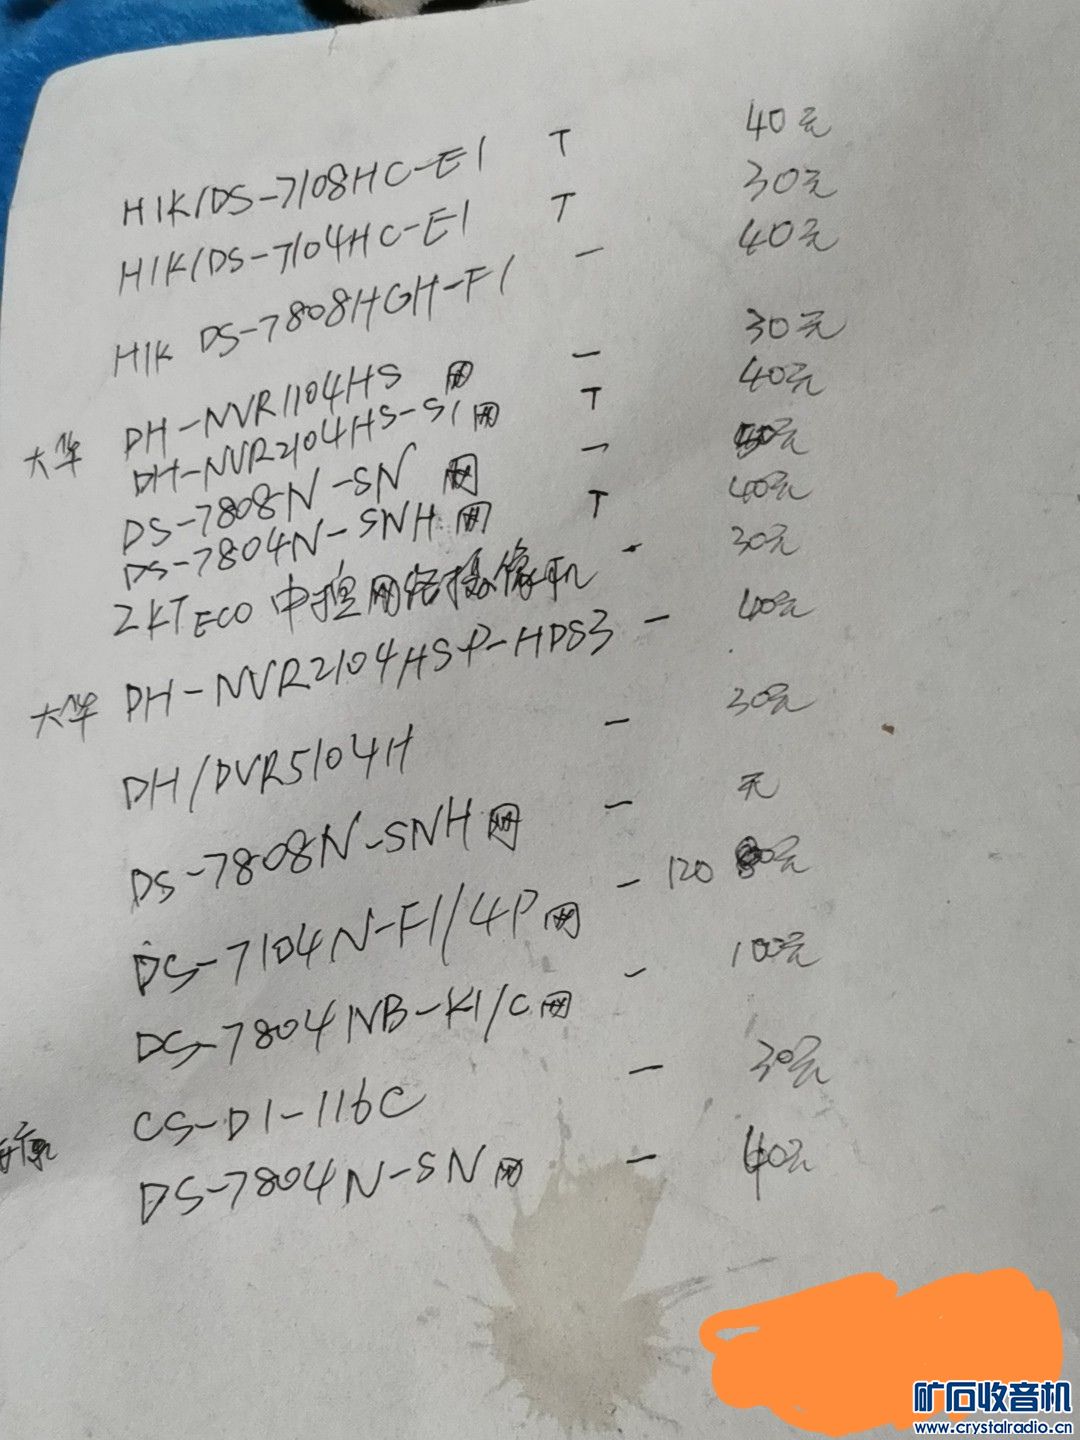 HIK/DS-7108HC-E1 T 40元
HIK/DS-7104HC-E1 T 30元
HIK DS-7808HGH-F1 一 40元
大华 DH-NVR1104HS 网 一 30元
DH-NVR2104HS-S1 网 T 40元
DS-7808N-SN 网 一 元
DS-7804N-SNH 网 T 40元
ZKTECO 中控网络摄像机 - 30元
大华 DH-NVR2104HSP-HDS3 一 40元
DH/DVR5104H 一 30元
DS-7808N-SNH 网 一 无
DS-7104N-F1/4P 网 一 120 元
DS-7804NB-K1/C 网 一 100元
CS-D1-116C 一 30元
DS-7804N-SN 网 一 40元
矿石收音机
www.crystalradio.cn